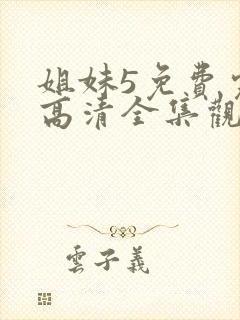 姐妹5免費
高清全集觀
雲子義